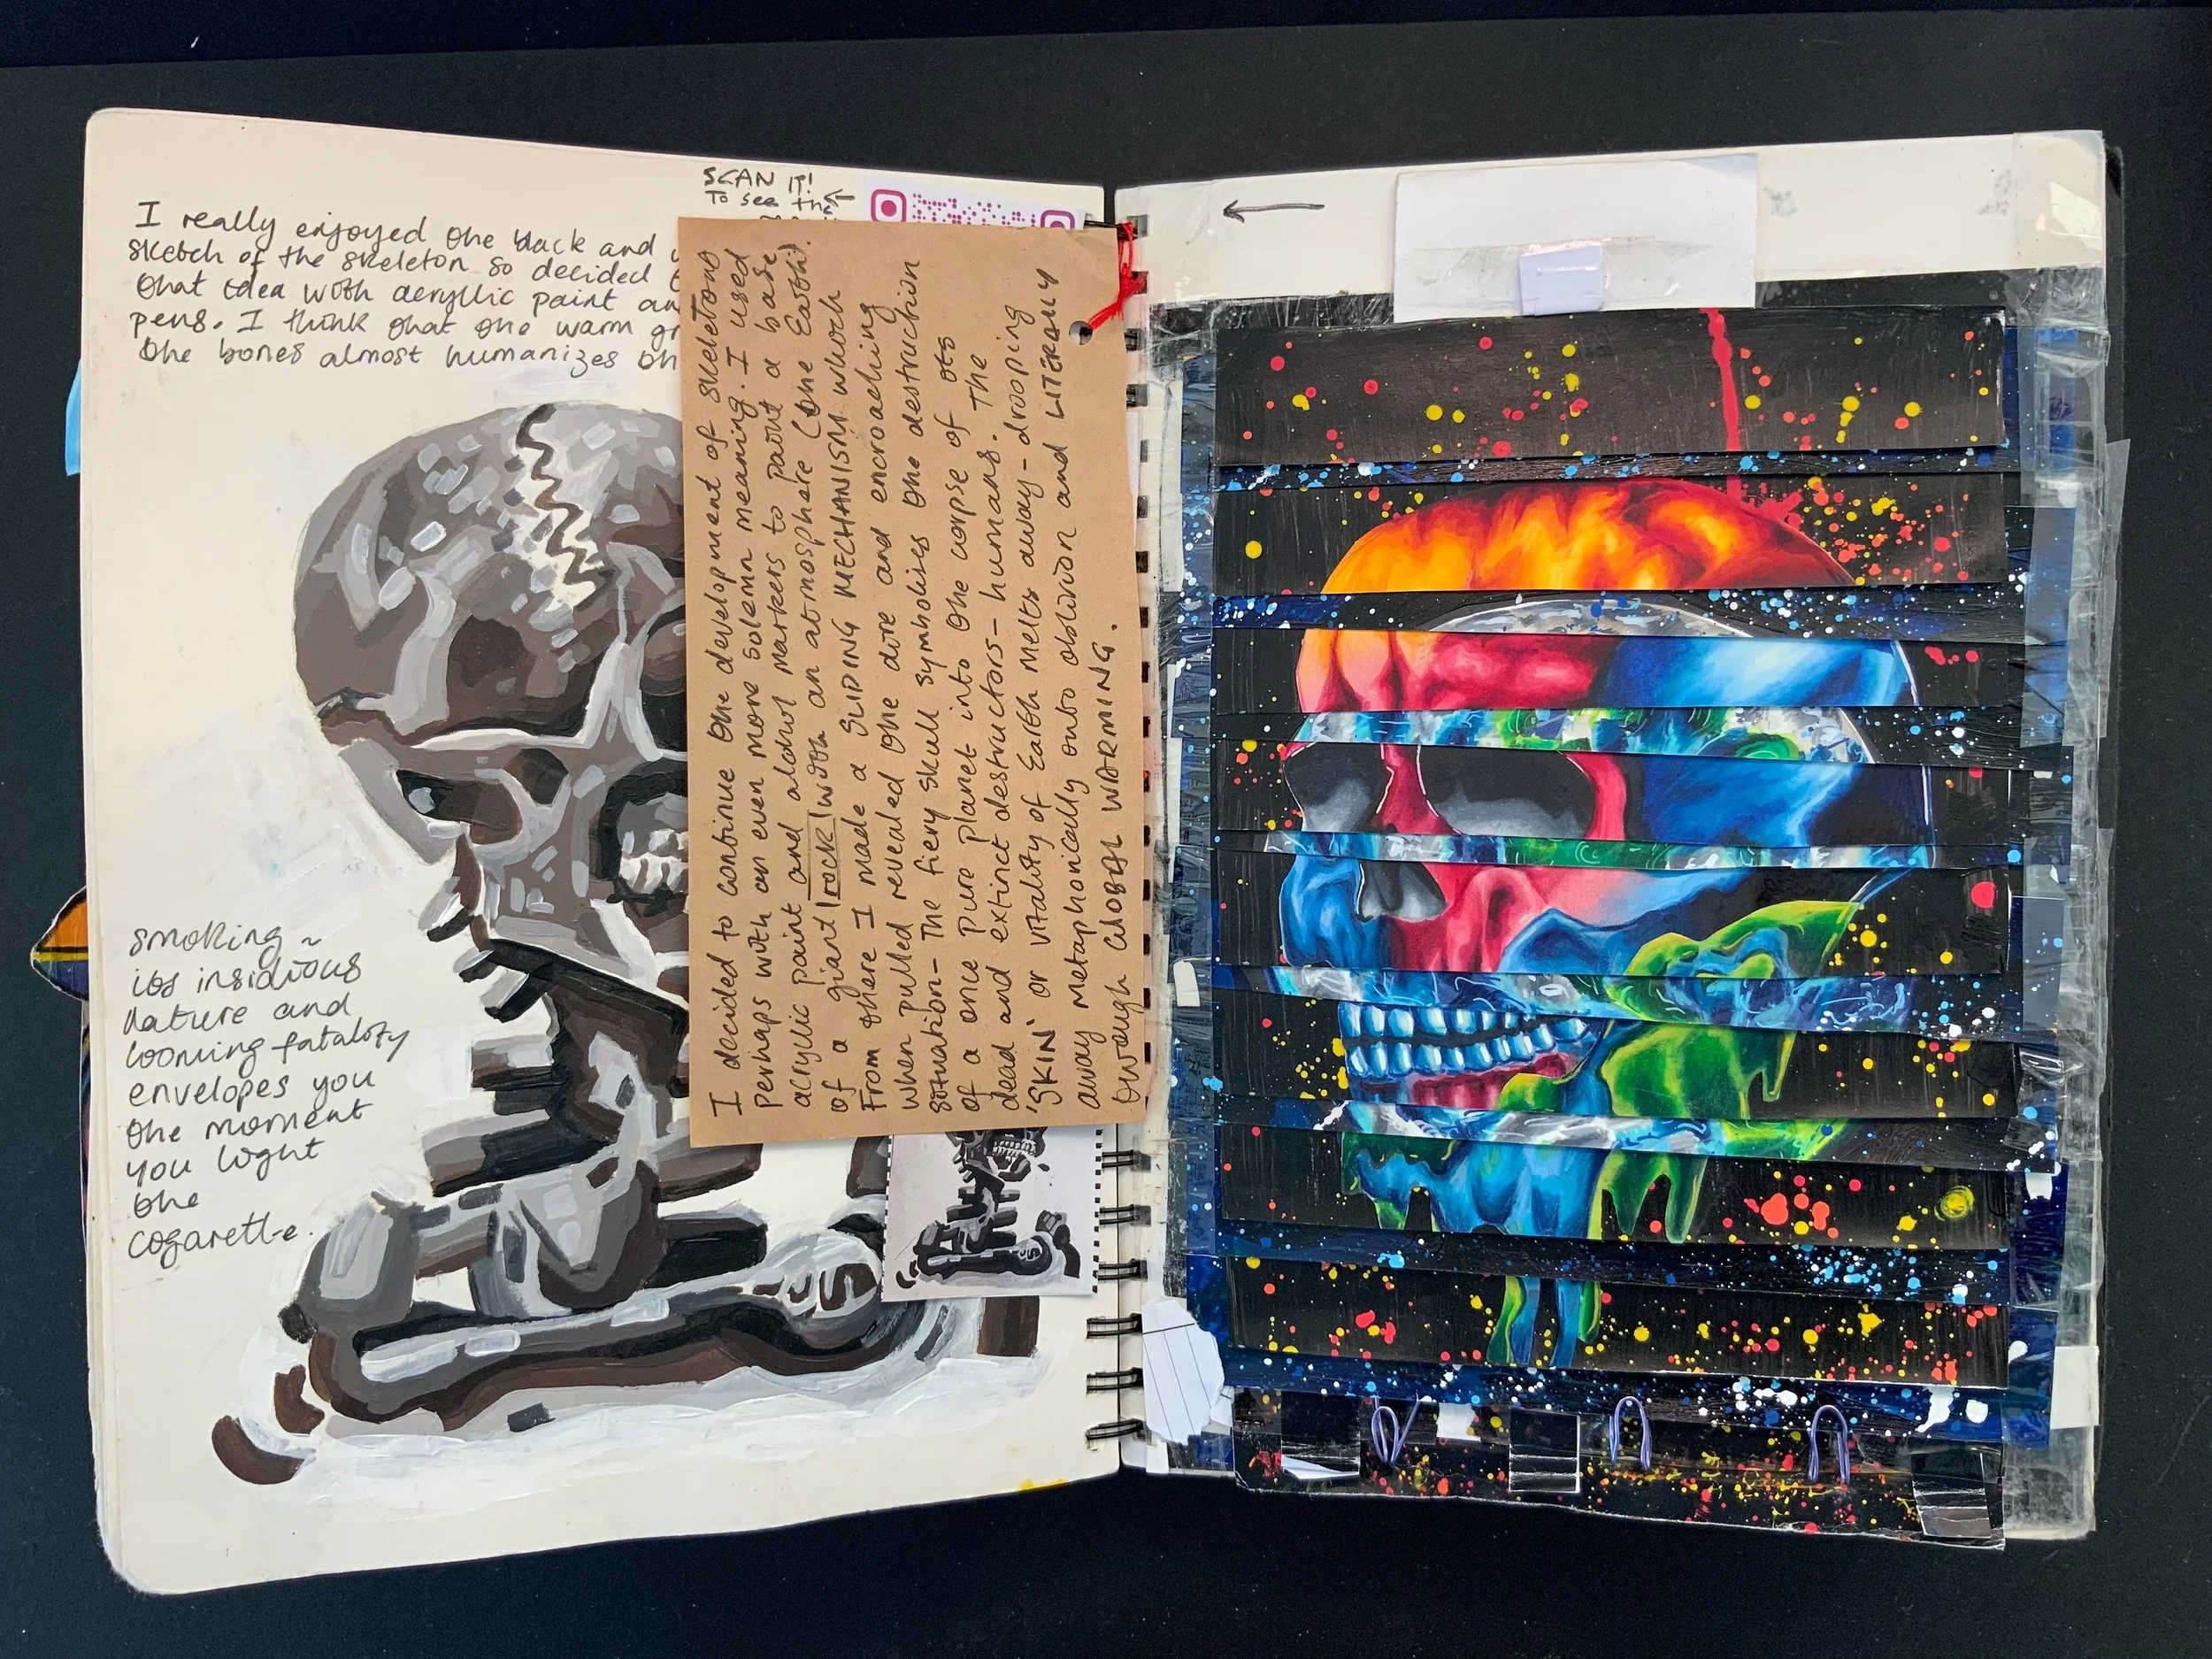 I really enjoyed the black and
sketch of the skeleton so decided
that idea with acryllic paint an
pens. I think that the warm gr
the bones almost humanizes th
SCAN IT!
To see the
smoking ~
its insidious
nature and
looming fatality
envelopes you
the moment
you light
the
cigarette.
I decided to continue the development of skeletons
perhaps with an even more solemn meaning. I used
acrylic paint and alchol markers to paint a base
of a giant rock with an atmosphere (the Earth).
From there I made a SLIDING MECHANISM which
when pulled revealed the dire and encroaching
situation- The fiery skull symbolises the destruction
of a once pure planet into the corpse of its
dead and extinct destructors- humans. The
'SKIN' or vitality of Earth melts away- dripping
away metaphorically into oblivion and LITERALLY
through GLOBAL WARMING.